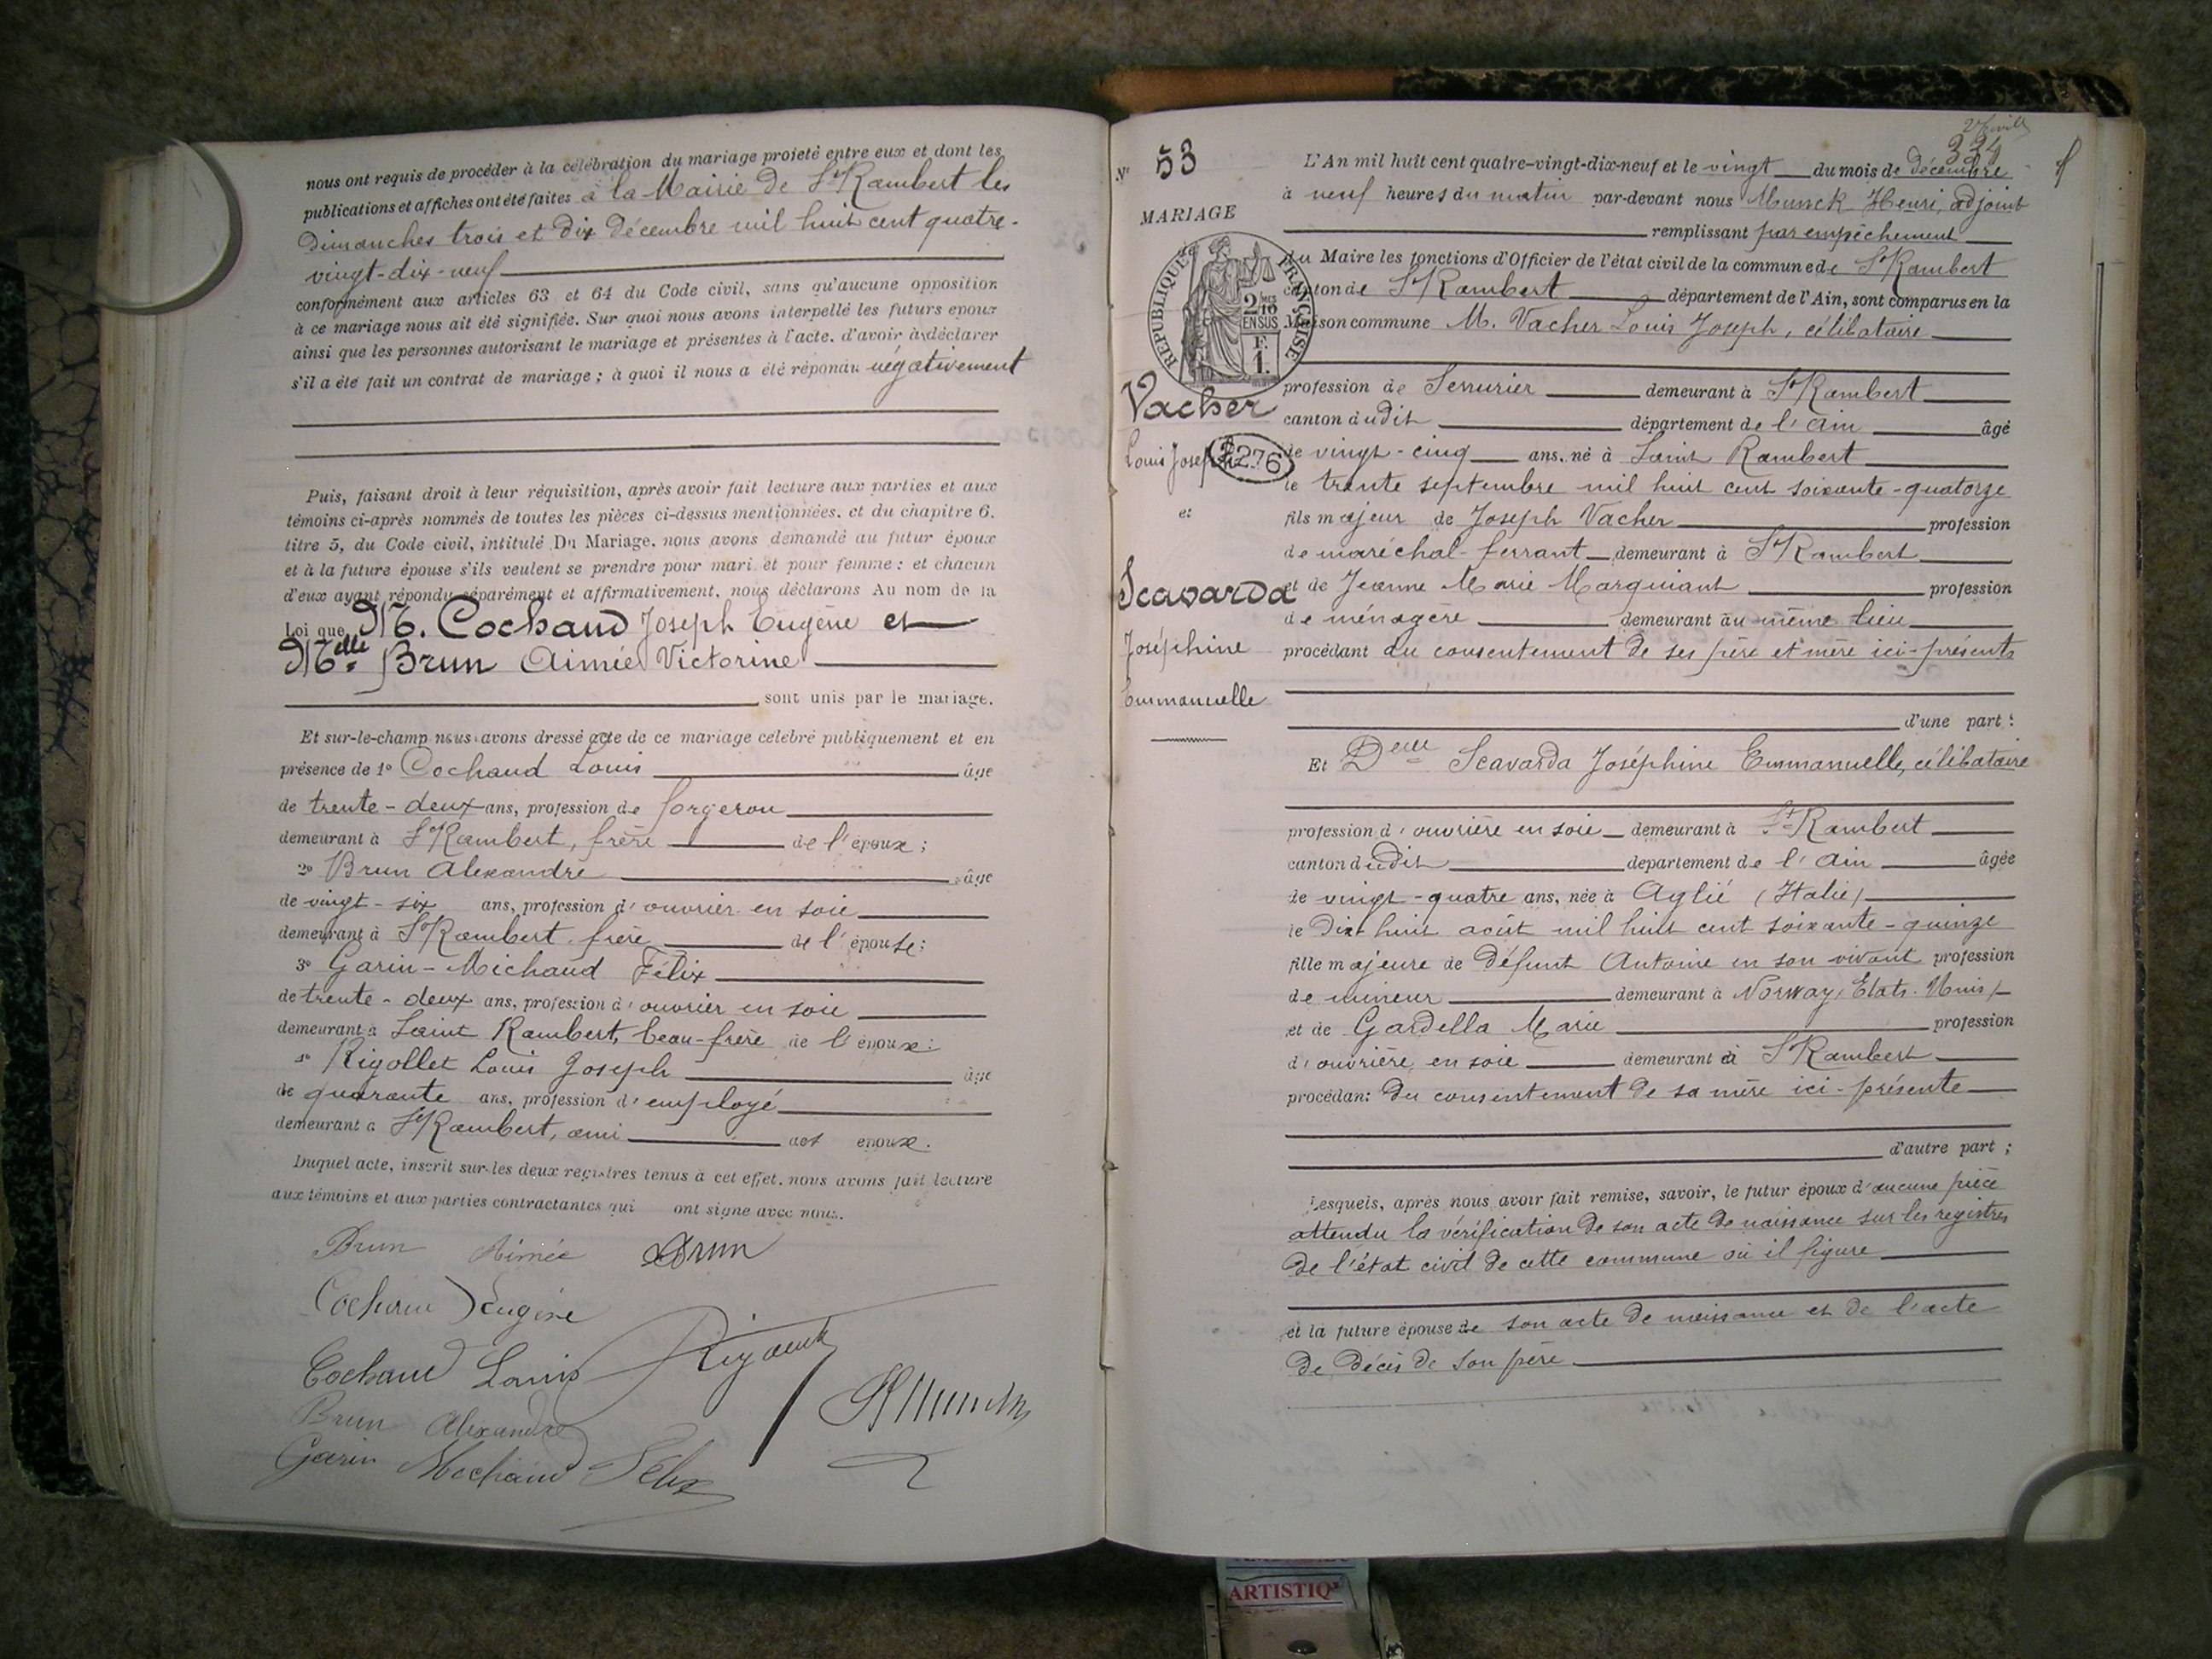 nous ont requis de procéder à la célébration du mariage projeté entre eux et dont les
publications et affiches ont été faites à la Mairie de St Rambert les
Dimanches trois et dix décembre mil huit cent quatre-
vingt-dix-neuf
conformément aux articles 63 et 64 du Code civil, sans qu'aucune opposition
à ce mariage nous ait été signifiée. Sur quoi nous avons interpellé les futurs époux
ainsi que les personnes autorisant le mariage et présentes à l'acte, d'avoir à déclarer
s'il a été fait un contrat de mariage ; à quoi il nous a été répondu négativement
Puis, faisant droit à leur réquisition, après avoir fait lecture aux parties et aux
témoins ci-après nommés de toutes les pièces ci-dessus mentionnées, et du chapitre 6,
titre 5, du Code civil, intitulé Du Mariage, nous avons demandé au futur époux
et à la future épouse s'ils veulent se prendre pour mari et pour femme ; et chacun
d'eux ayant répondu séparément et affirmativement, nous déclarons Au nom de la
Loi que M. Cochaud Joseph Eugène et
Melle Brun Aimée Victorine
sont unis par le mariage.
Et sur-le-champ nous avons dressé acte de ce mariage célébré publiquement et en
présence de 1° Cochaud Louis âgé
de trente-deux ans, profession de forgeron
demeurant à St Rambert, frère de l'époux ;
2° Brun Alexandre âgé
de vingt-six ans, profession d'ouvrier en soie
demeurant à St Rambert, frère de l'épouse ;
3° Garin-Michaud Félix
de trente-deux ans, profession d'ouvrier en soie
demeurant à Saint Rambert, beau-frère de l'époux ;
Rigollet Louis Joseph âgé
de quarante ans, profession d'employé
demeurant à St Rambert, ami des époux.
Duquel acte, inscrit sur les deux registres tenus à cet effet, nous avons fait lecture
aux témoins et aux parties contractantes qui ont signé avec nous.
Brun Aimée Brun
Eugène
Cochaud Louis
Brun Alexandre
Garin Michaud Félix
N° 53
324
MARIAGE
RÉPUBLIQUE FRANÇAISE
2/10 EN SUS
F. 1.
Vacher
Louis Joseph
2276
et
Scavarda
Joséphine
Emmanuelle
L'An mil huit cent quatre-vingt-dix-neuf et le vingt du mois de décembre
à neuf heures du matin par-devant nous Munck Henri, adjoint
remplissant par empêchement
du Maire les fonctions d'Officier de l'état civil de la commune de St Rambert
canton de St Rambert département de l'Ain, sont comparus en la
Maison commune M. Vacher Louis Joseph, célibataire
profession de Serrurier demeurant à St Rambert
canton dudit département de l'Ain âgé
de vingt-cinq ans, né à Saint Rambert
le trente septembre mil huit cent soixante-quatorze
fils majeur de Joseph Vacher profession
de maréchal-ferrant demeurant à St Rambert
et de Jeanne Marie Marquiant profession
de ménagère demeurant au même lieu
procédant du consentement de ses père et mère ici-présents
d'une part ;
Et Delle Scavarda Joséphine Emmanuelle, célibataire
profession d'ouvrière en soie demeurant à St Rambert
canton dudit département de l'Ain âgée
de vingt-quatre ans, née à Aglié (Italie)
le dix huit août mil huit cent soixante-quinze
fille majeure de défunt Antoine en son vivant profession
de mineur demeurant à Norway, Etats-Unis
et de Gardella Marie profession
d'ouvrière en soie demeurant à St Rambert
procédant du consentement de sa mère ici-présente
d'autre part ;
Lesquels, après nous avoir fait remise, savoir, le futur époux d'aucune pièce
attendu la vérification de son acte de naissance sur les registres
de l'état civil de cette commune où il figure
et la future épouse de son acte de naissance et de l'acte
de décès de son père
ARTISTIQ